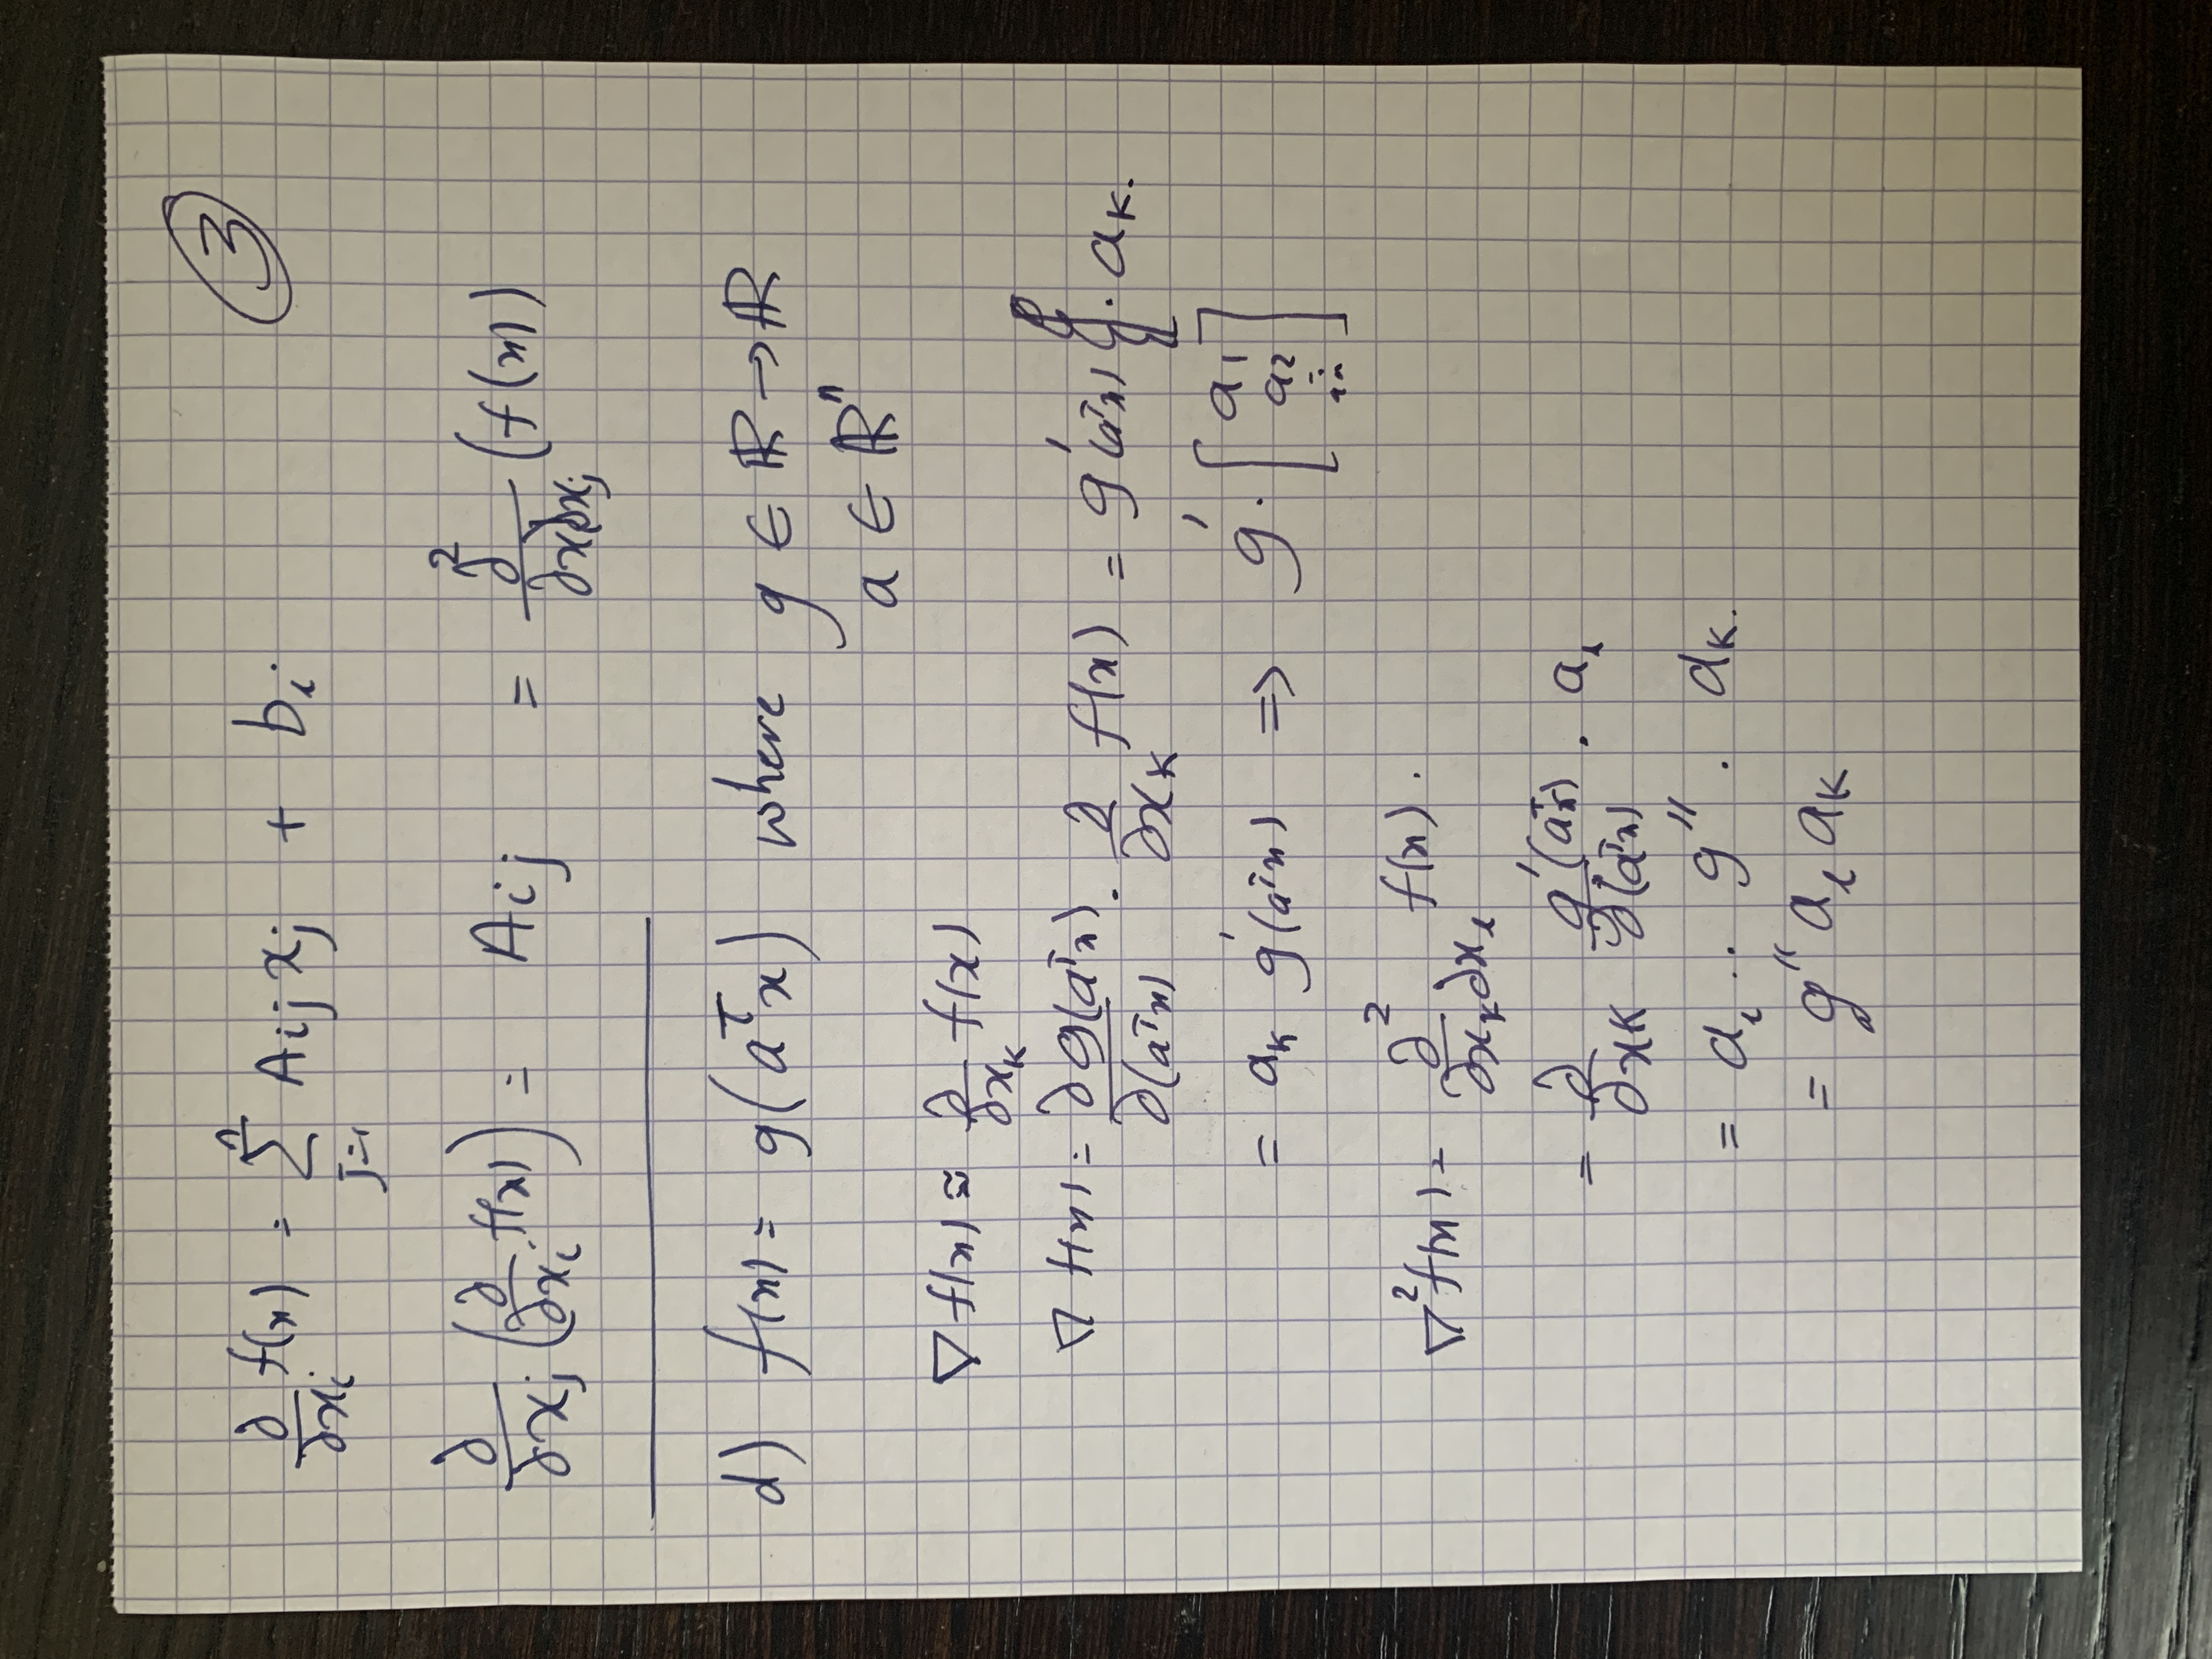 ③
∂/∂xᵢ f(x) = Σⱼ₌₁ⁿ Aᵢⱼ xⱼ + bᵢ
∂/∂xⱼ (∂/∂xᵢ f(x)) = Aᵢⱼ = ∂²/∂xᵢ∂xⱼ (f(x))
d) f(x) = g(aᵀx) where g ∈ ℝ → ℝ
a ∈ ℝⁿ
∇f(x) ≈ ∂/∂xₖ f(x)
∇f(x) = ∂g(aᵀx)/∂(aᵀx) · ∂/∂xₖ f(x) = g'(aᵀx) · aₖ.
= aₖ g'(aᵀx) ⇒ g' · [a₁ a₂ ⋮ aₙ]
∇²f(x) = ∂²/∂xₖ∂xₗ f(x).
= ∂/∂xₖ g'(aᵀx)/∂(aᵀx) · aₗ
= aₗ · · g'' · aₖ.
= g'' aₗ aₖ